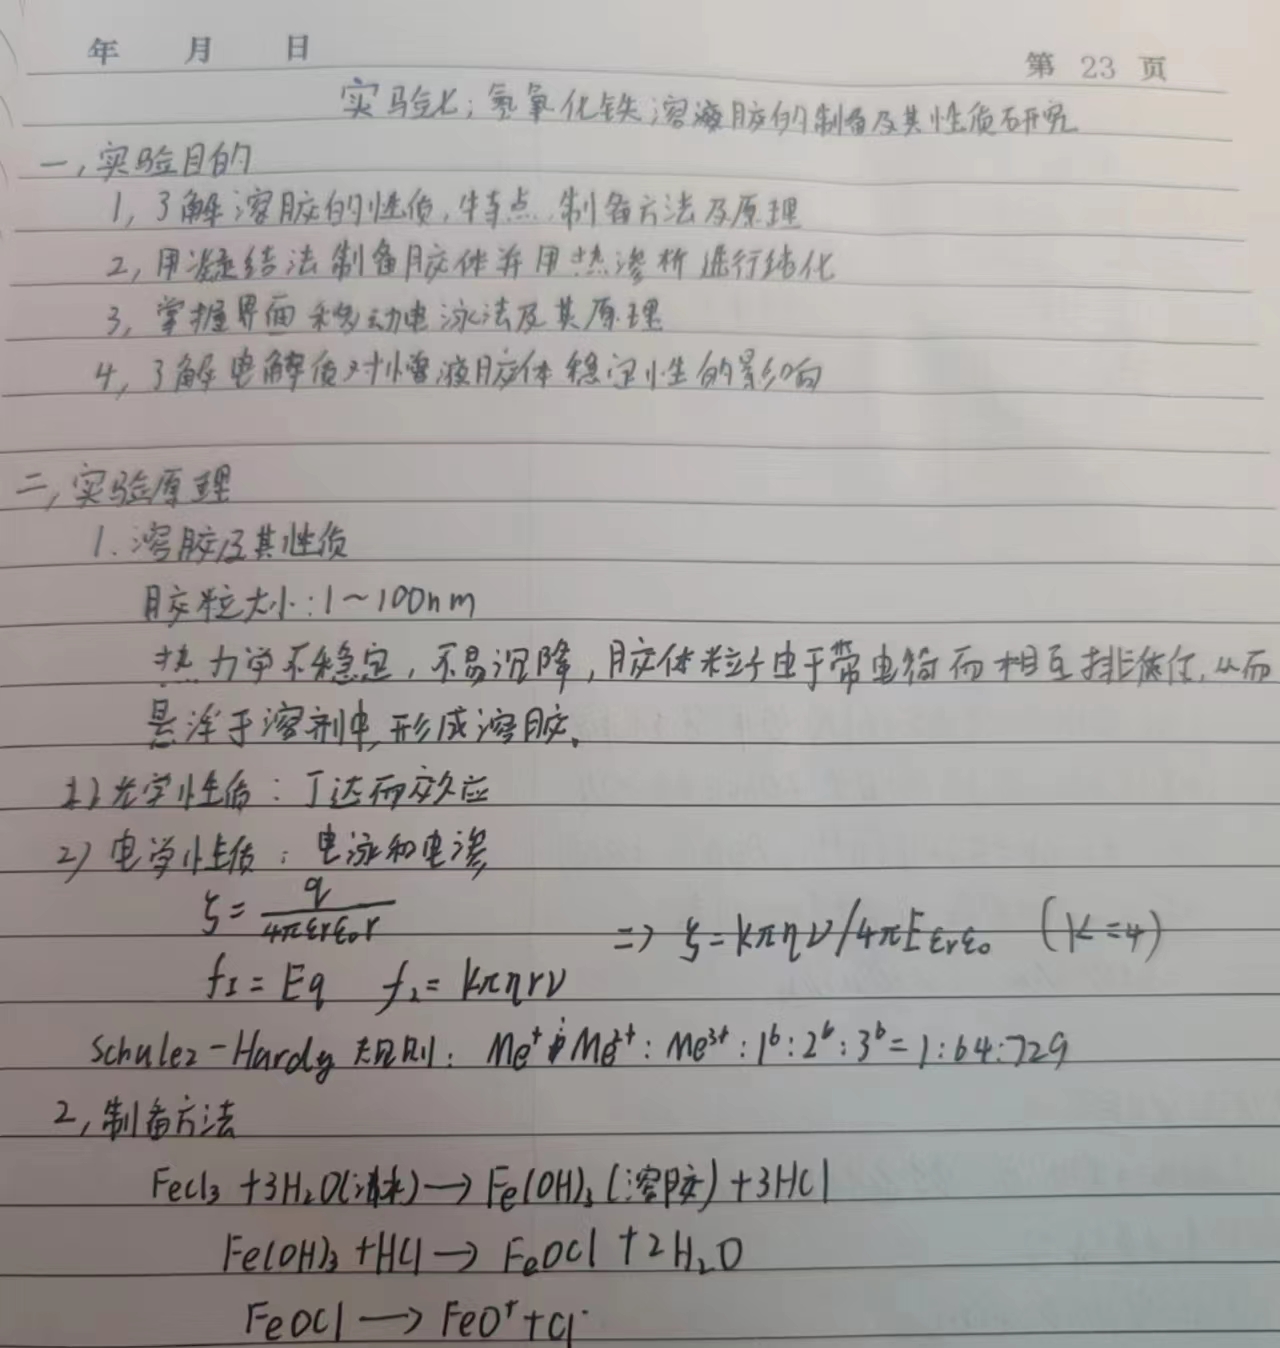 年 月 日
第 23 页
实验七:氢氧化铁溶液胶的制备及其性质研究
一,实验目的
1,了解溶胶的性质,特点,制备方法及原理
2,用凝结法制备胶体并用热渗析进行纯化
3,掌握界面移动电泳法及其原理
4,了解电解质对憎液胶体稳定性的影响
二,实验原理
1.溶胶及其性质
胶粒大小:1~100nm
热力学不稳定,不易沉降,胶体粒子由于带电荷而相互排斥,从而
悬浮于溶剂中,形成溶胶。
1)光学性质:丁达而效应
2)电学性质:电泳和电渗
ζ=q/4πεrε₀r
⇒ ζ=kπην/4πEεrε₀ (k=4)
f₁=Eq f₂=kπηrν
Schulez-Hardy规则:Me⁺:Me²⁺:Me³⁺:1⁶:2⁶:3⁶=1:64:729
2,制备方法
FeCl₃+3H₂O(沸水)→Fe(OH)₃(溶胶)+3HCl
Fe(OH)₃+HCl→FeOCl+2H₂O
FeOCl→FeO⁺+Cl⁻